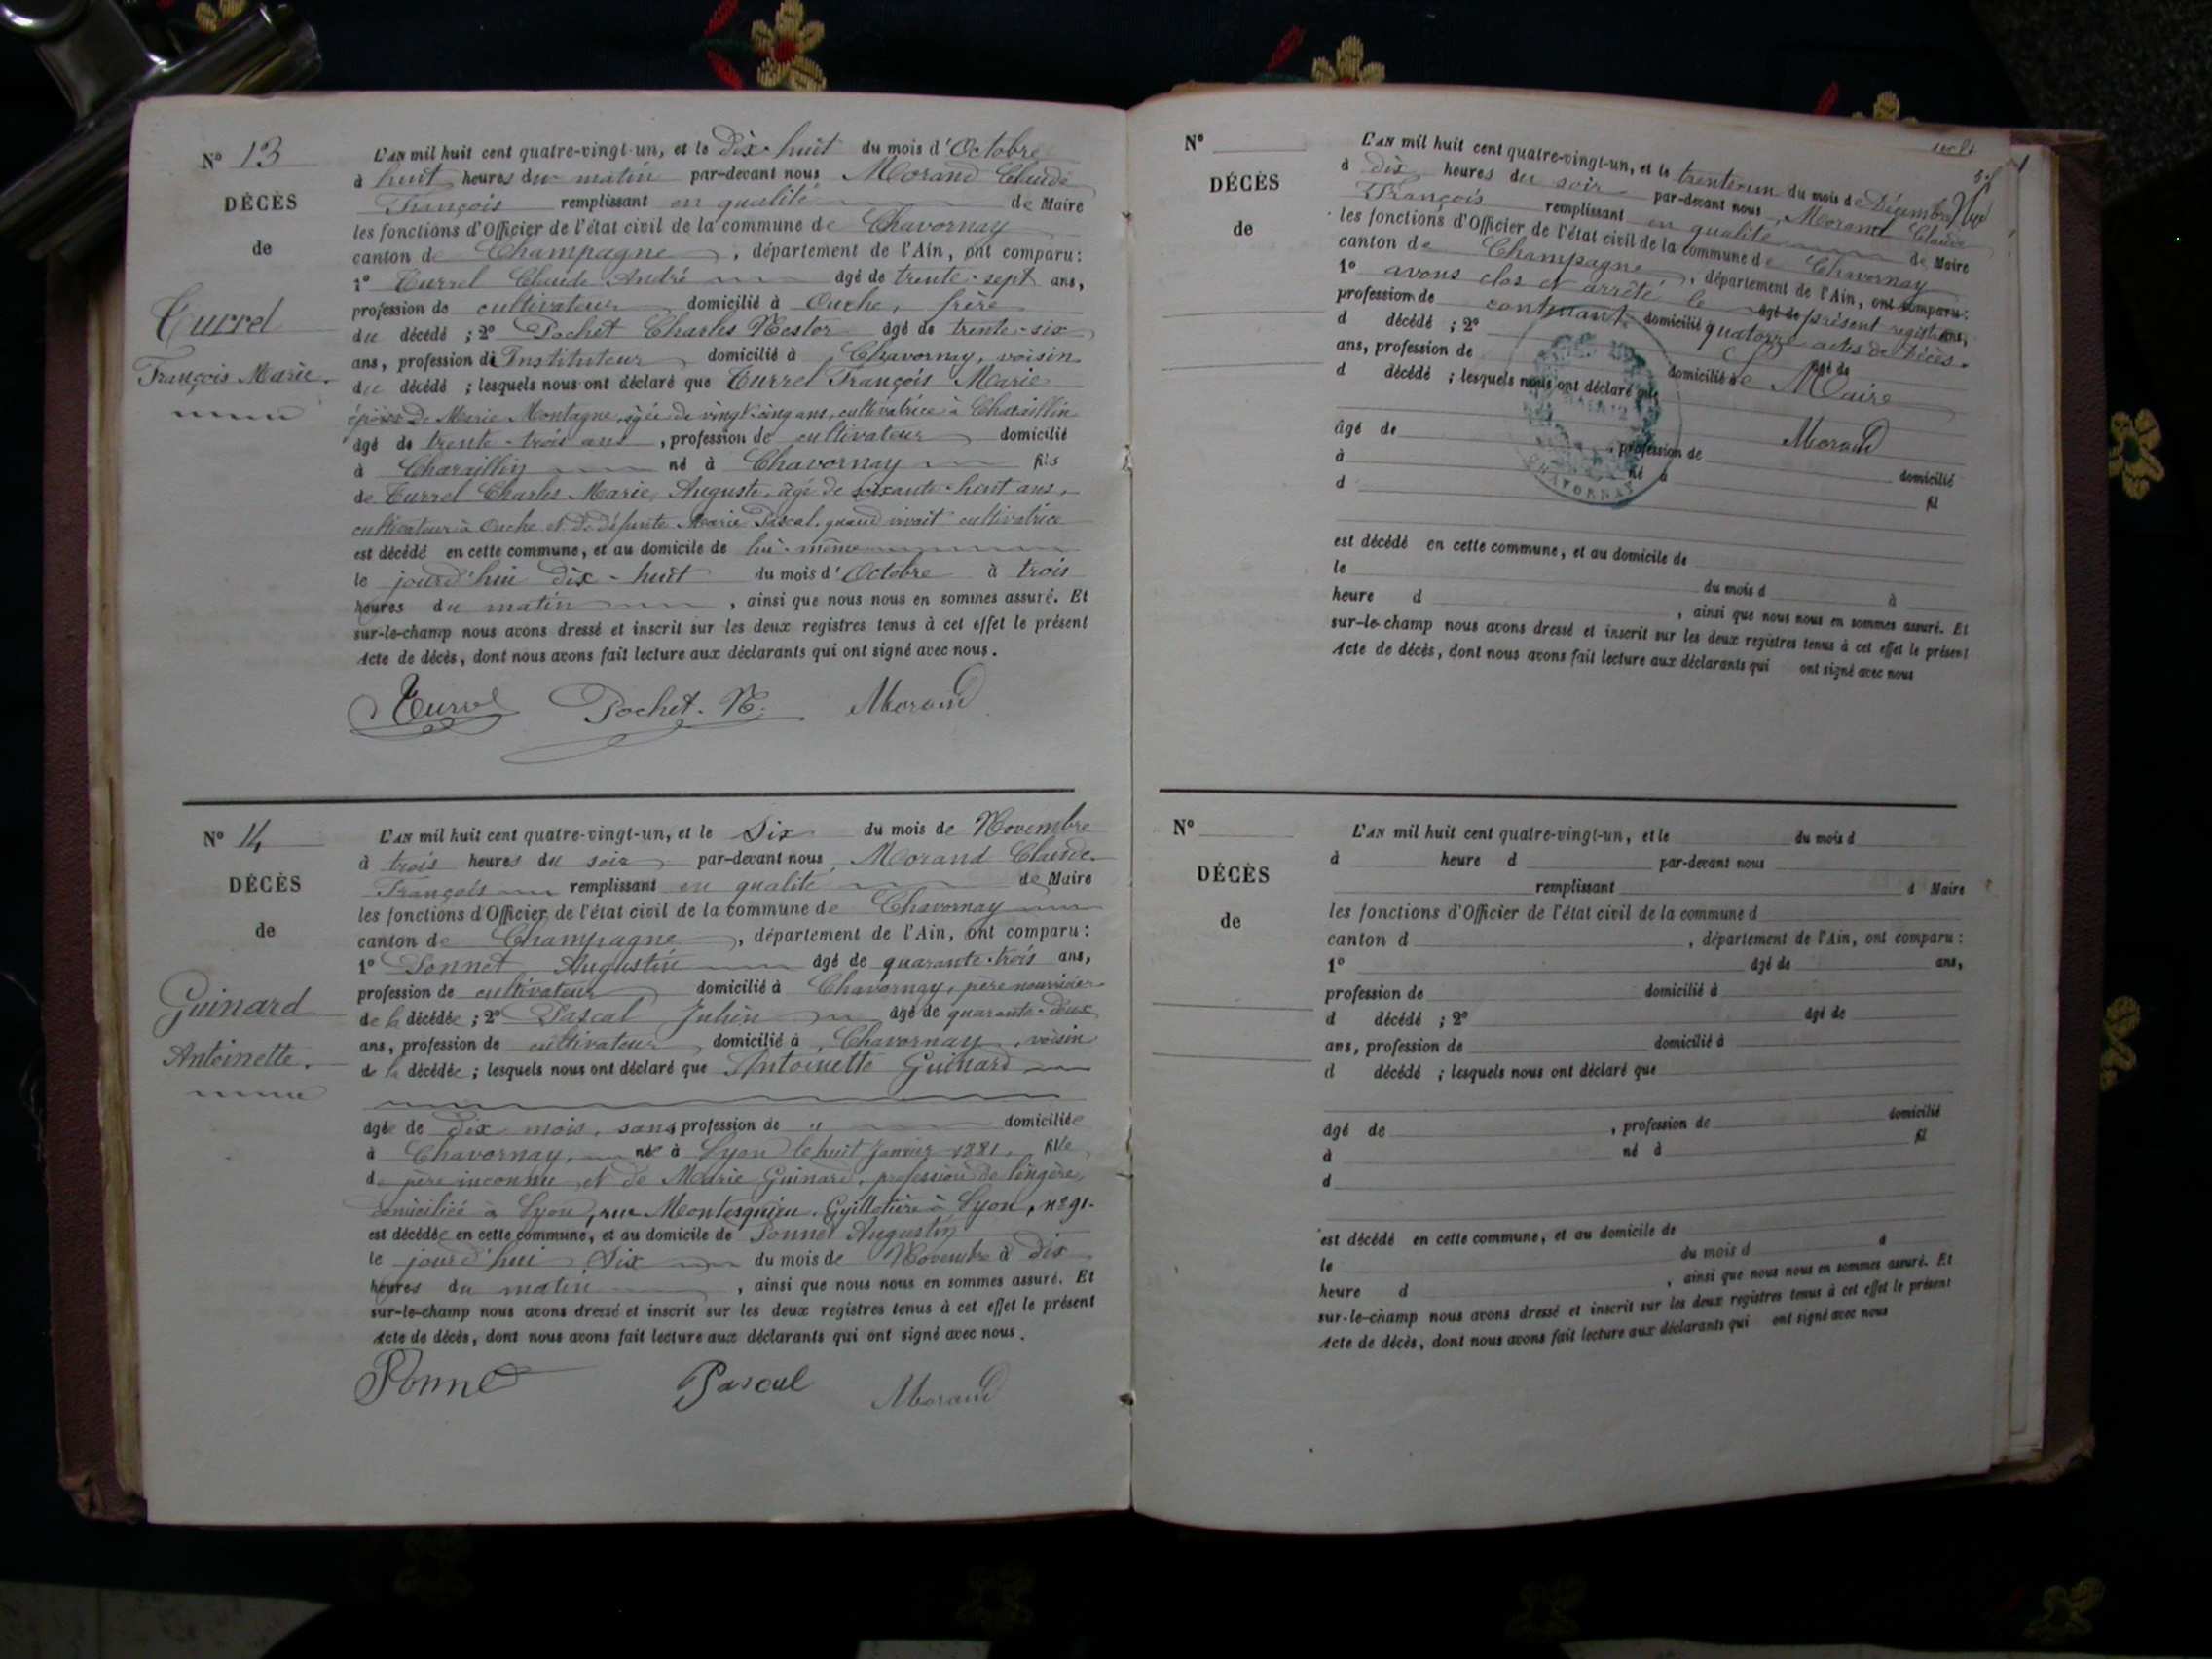 N° 13
DÉCÈS
de
Turrel
François Marie.
L'AN mil huit cent quatre-vingt-un, et le dix-huit du mois d'Octobre
à huit heures du matin par-devant nous Morand Claude
François remplissant en qualité de Maire
les fonctions d'Officier de l'état civil de la commune de Chavornay
canton de Champagne, département de l'Ain, ont comparu :
1° Turrel Claude André âgé de trente-sept ans,
profession de cultivateur domicilié à Ouche, frère
du décédé ; 2° Pochet Charles Nestor âgé de trente-six
ans, profession d'Instituteur domicilié à Chavornay, voisin
du décédé ; lesquels nous ont déclaré que Turrel François Marie
époux de Marie Montagne, âgée de vingt-cinq ans, cultivatrice à Charaillin
âgé de trente-trois ans, profession de cultivateur domicilié
à Charaillin né à Chavornay fils
de Turrel Charles Marie Auguste, âgé de soixante-huit ans,
cultivateur à Ouche et de défunte Marie Pascal, quand vivait cultivatrice
est décédé en cette commune, et au domicile de lui-même
le jourd'hui dix-huit du mois d'Octobre à trois
heures du matin, ainsi que nous nous en sommes assuré. Et
sur-le-champ nous avons dressé et inscrit sur les deux registres tenus à cet effet le présent
Acte de décès, dont nous avons fait lecture aux déclarants qui ont signé avec nous.
Turrel Pochet. N. Morand
N° 14
DÉCÈS
de
Guinard
Antoinette.
L'AN mil huit cent quatre-vingt-un, et le Six du mois de Novembre
à trois heures du soir par-devant nous Morand Claude
François remplissant en qualité de Maire
les fonctions d'Officier de l'état civil de la commune de Chavornay
canton de Champagne, département de l'Ain, ont comparu :
1° Ponnet Augustin âgé de quarante-trois ans,
profession de cultivateur domicilié à Chavornay, père nourricier
de la décédée ; 2° Pascal Julien âgé de quarante-deux
ans, profession de cultivateur domicilié à Chavornay, voisin
de la décédée ; lesquels nous ont déclaré que Antoinette Guinard
âgée de dix mois, sans profession de " domiciliée
à Chavornay, née à Lyon le huit Janvier 1881, fille
de père inconnu et de Marie Guinard, profession de lingère,
domiciliée à Lyon, rue Montesquieu, Guillotière à Lyon, n° 91.
est décédée en cette commune, et au domicile de Ponnet Augustin
le jourd'hui Six du mois de Novembre à dix
heures du matin, ainsi que nous nous en sommes assuré. Et
sur-le-champ nous avons dressé et inscrit sur les deux registres tenus à cet effet le présent
Acte de décès, dont nous avons fait lecture aux déclarants qui ont signé avec nous.
Ponnet Pascal Morand
N°
DÉCÈS
de
L'AN mil huit cent quatre-vingt-un, et le trente-un du mois de Décembre
à dix heures du soir par-devant nous, Morand Claude
François remplissant en qualité de Maire
les fonctions d'Officier de l'état civil de la commune de Chavornay
canton de Champagne, département de l'Ain, ont comparu :
1° avons clos et arrêté le âgé de présent registre ans,
profession de contenant domicilié quatorze actes de décès.
d décédé ; 2° âgé de
ans, profession de domicilié à Le Maire
d décédé ; lesquels nous ont déclaré que
Morand
âgé de , profession de domicilié
à né à fil
d
CHAVORNAY
est décédé en cette commune, et au domicile de
le du mois d à
heure d , ainsi que nous nous en sommes assuré. Et
sur-le-champ nous avons dressé et inscrit sur les deux registres tenus à cet effet le présent
Acte de décès, dont nous avons fait lecture aux déclarants qui ont signé avec nous
N°
DÉCÈS
de
L'AN mil huit cent quatre-vingt-un, et le du mois d
à heure d par-devant nous
remplissant d Maire
les fonctions d'Officier de l'état civil de la commune d
canton d , département de l'Ain, ont comparu :
1° âgé de ans,
profession de domicilié à
d décédé ; 2° âgé de
ans, profession de domicilié à
d décédé ; lesquels nous ont déclaré que
âgé de , profession de domicilié
à né à fil
d
est décédé en cette commune, et au domicile de
le du mois d à
heure d , ainsi que nous nous en sommes assuré. Et
sur-le-champ nous avons dressé et inscrit sur les deux registres tenus à cet effet le présent
Acte de décès, dont nous avons fait lecture aux déclarants qui ont signé avec nous